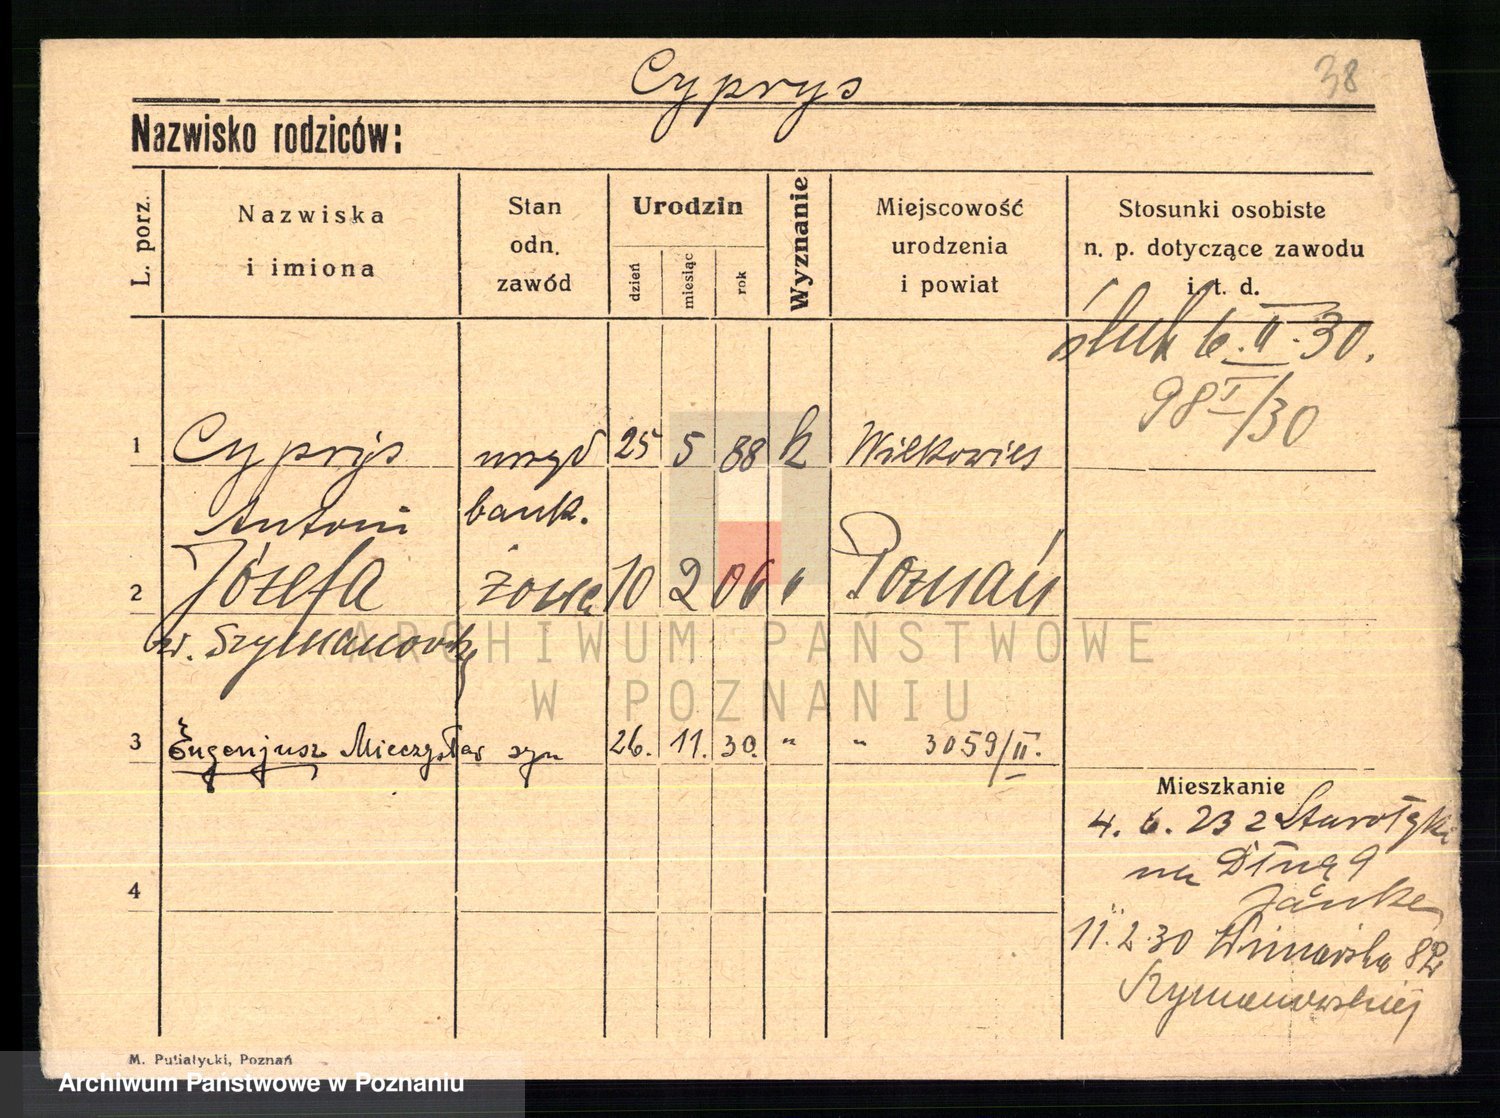 Cyprys
38
Nazwisko rodziców:
L. porz.
Nazwiska
i imiona
Stan
odn.
zawód
Urodzin
dzień
miesiąc
rok
Wyznanie
Miejscowość
urodzenia
i powiat
Stosunki osobiste
n. p. dotyczące zawodu
i. t. d.
ślub 6.II.30.
98 I/30
1 Cyprys urzęd 25 5 88 k Wilkowies
Antoni bank.
2 Józefa żona 10 2 06 " Poznań
z. Szymanowska
3 Eugenjusz Mieczysław syn 26. 11. 30. " " 3059/II.
Mieszkanie
4. 6. 23 z Starołęki
na Długą 9
Jänke
4
11. 2. 30 Winiarska
Szymanowskiej
M. Putiatycki, Poznań
ARCHIWUM PAŃSTWOWE
W POZNANIU
Archiwum Państwowe w Poznaniu